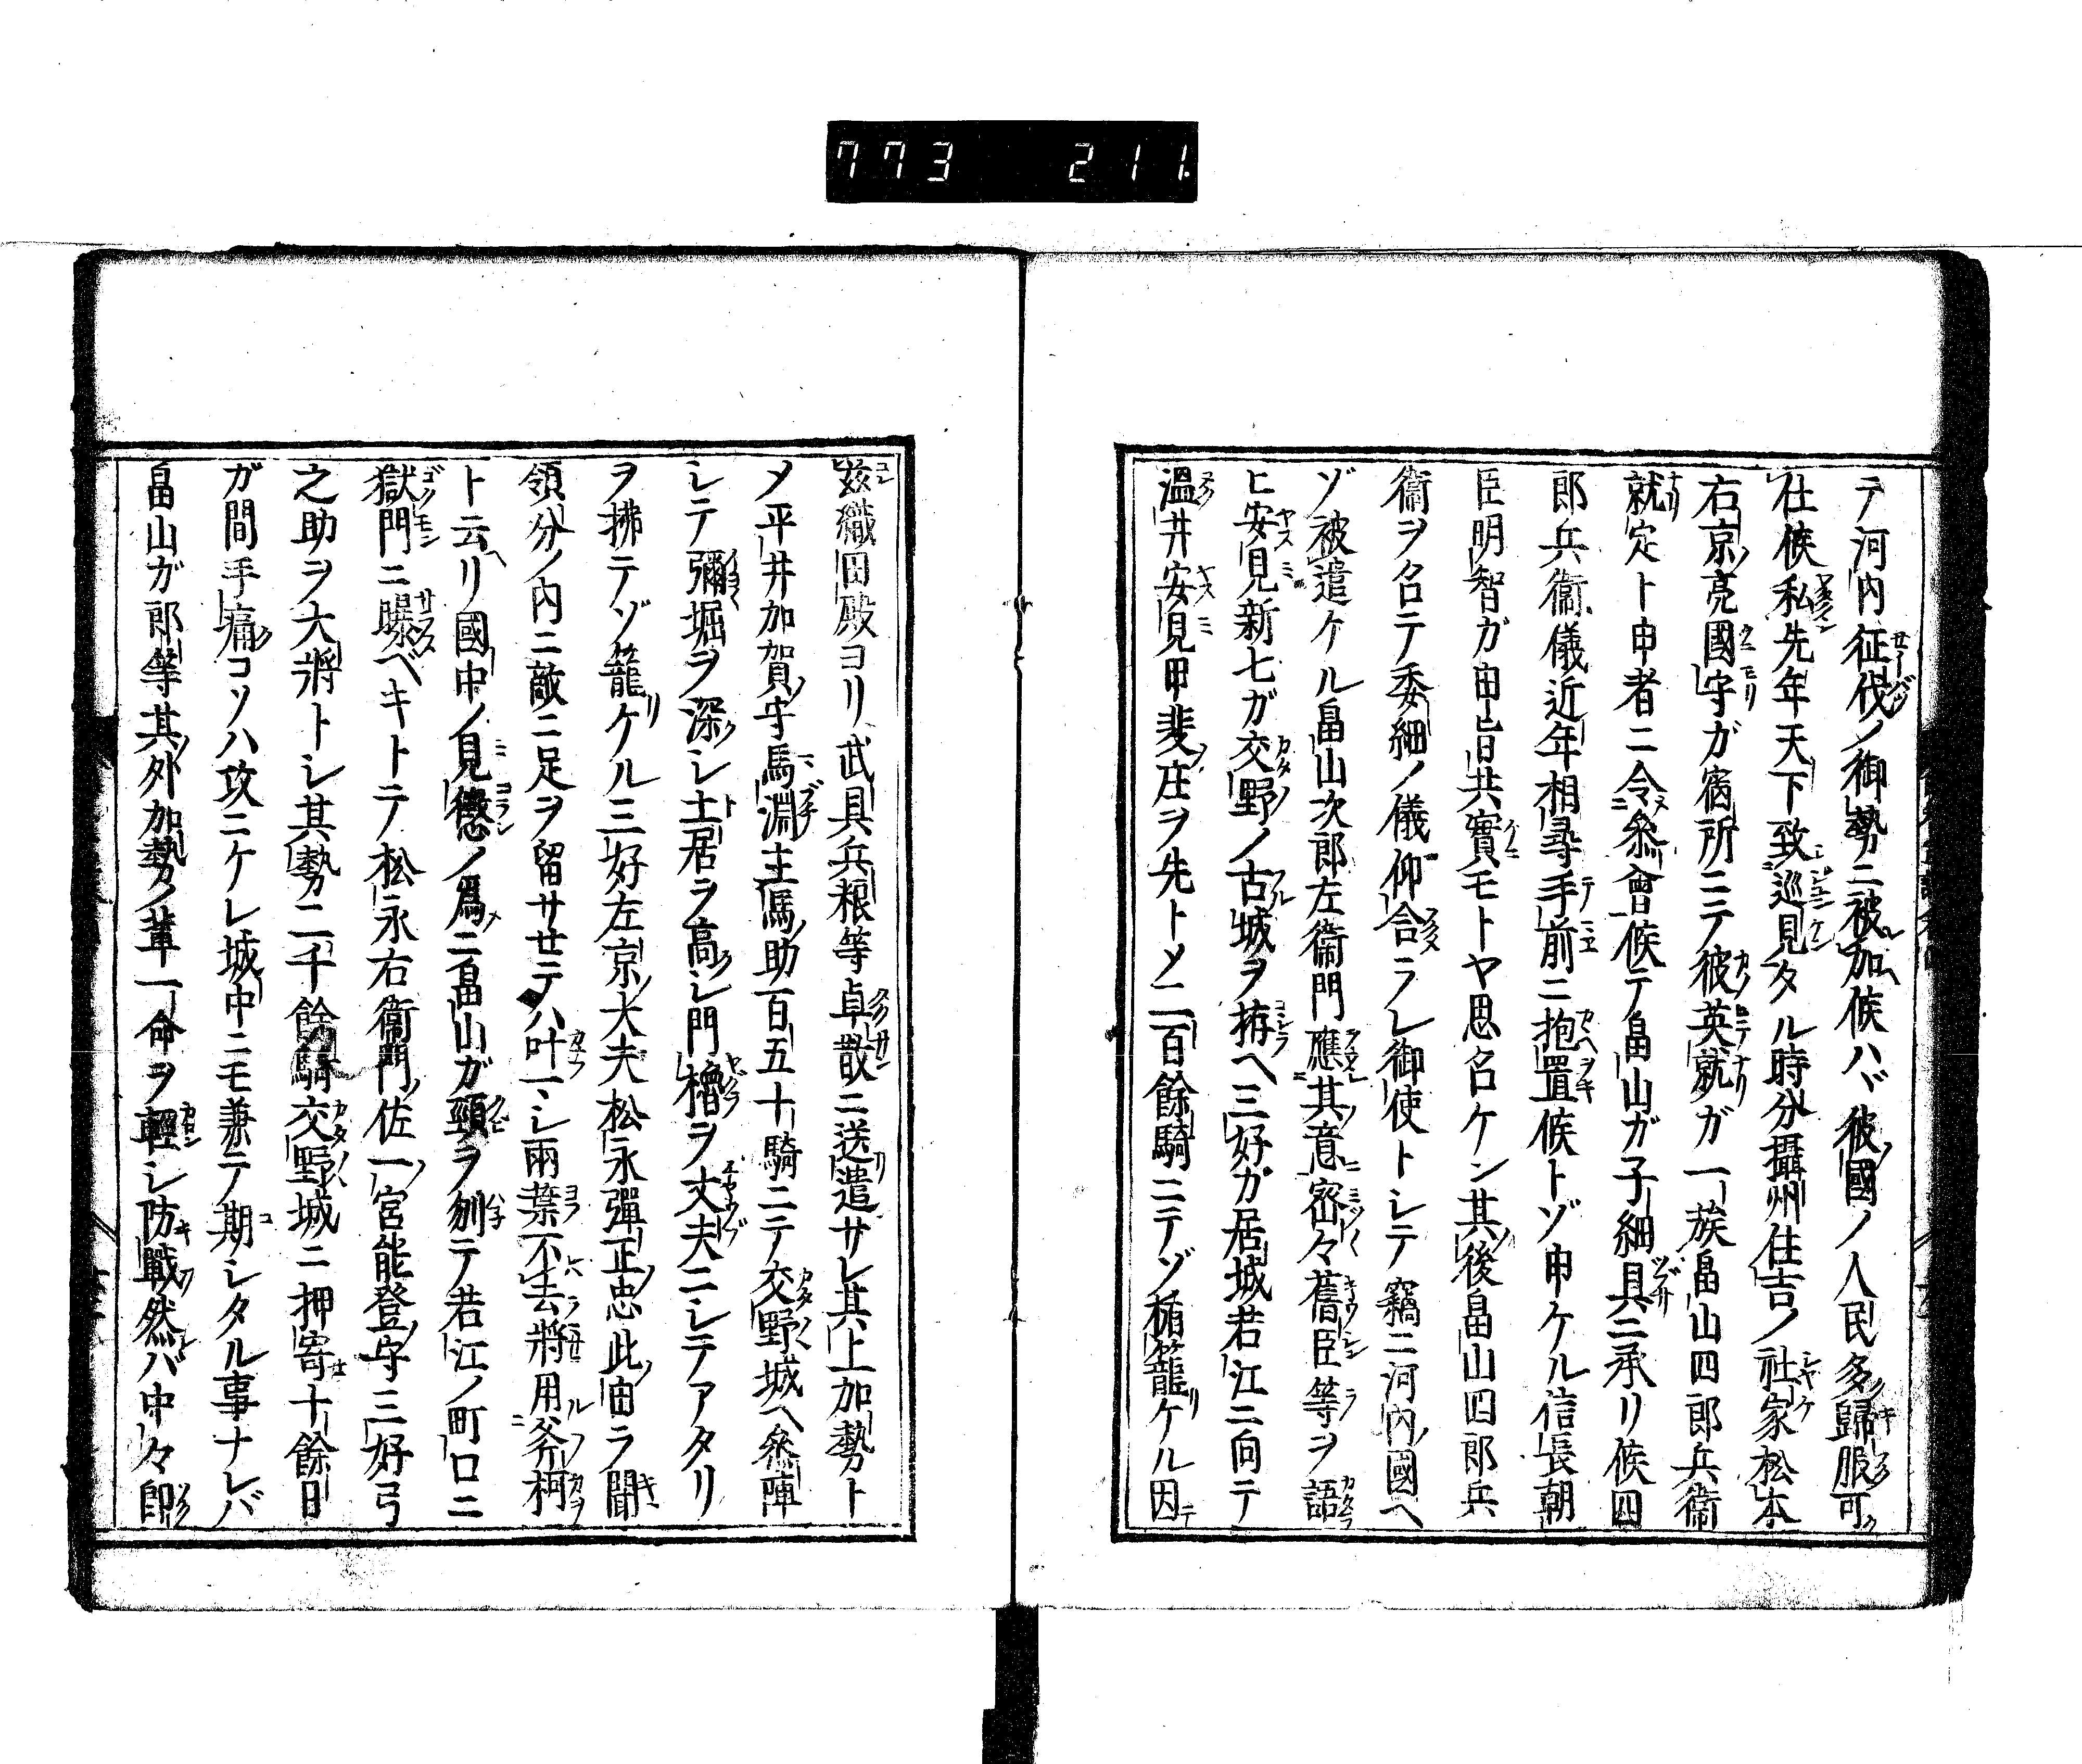 773 211
テ河内征伐ノ御勢ニ被加候ハヾ彼國ノ人民多歸服可
仕候私先年天下致巡見タル時分攝州住吉ノ社家松本
右京亮國守ガ宿所ニテ彼英就ガ一族畠山四郎兵衛
就定ト申者ニ令參會候テ畠山ガ子細具ニ承リ候四
郎兵衛儀近年相尋手前ニ抱置候トゾ申ケル信長朝
臣明智ガ申旨共實モトヤ思召ケン其後畠山四郎兵
衛ヲ召テ委細ノ儀仰合ラレ御使トシテ竊ニ河内國ヘ
ゾ被遣ケル畠山次郎左衛門應其意密々舊臣等ヲ語
ヒ安見新七ガ交野ノ古城ヲ拵ヘ三好ガ居城若江ニ向テ
溫井安見甲斐庄ヲ先トメ二百餘騎ニテゾ楯籠ケル因
茲織田殿ヨリ武具兵粮等卓散ニ送遣サレ其上加勢ト
メ平井加賀守馬淵主馬助百五十騎ニテ交野城ヘ參陣
シテ彌堀ヲ深シ土居ヲ高シ門櫓ヲ丈夫ニシテアタリ
ヲ拂テゾ籠ケル三好左京大夫松永彈正忠此由ラ聞
領分ノ内ニ敵ニ足ヲ留サセテハ叶マシ兩葉不去將用斧柯
ト云ヘリ國中ノ見懲ノ爲ニ畠山ガ頸ヲ刎テ若江ノ町口ニ
獄門ニ曝ベキトテ松永右衞門佐一宮能登守三好弓
之助ヲ大將トシ其勢二千餘騎交野城ニ押寄十餘日
ガ間手痛コソハ攻ニケレ城中ニモ兼テ期シタル事ナレバ
畠山ガ郎等其外加勢ノ輩一命ヲ輕シ防戰然バ中々卽